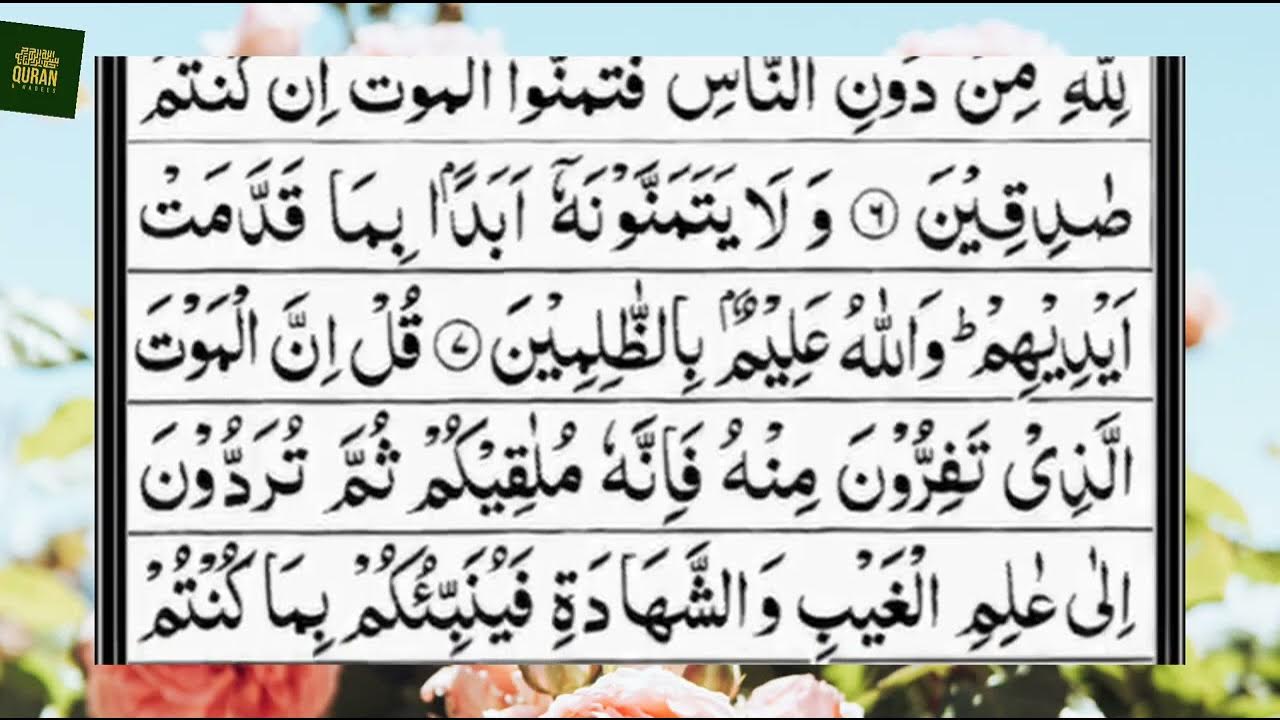 QURAN
& HADEES
لِلّٰهِ مِنْ دُوْنِ النَّاسِ فَتَمَنَّوُا الْمَوْتَ اِنْ كُنْتُمْ
صٰدِقِيْنَ ۶ وَ لَا يَتَمَنَّوْنَهٗۤ اَبَدًۢا بِمَا قَدَّمَتْ
اَيْدِيْهِمْ ؕ وَاللّٰهُ عَلِيْمٌۢ بِالظّٰلِمِيْنَ ۷ قُلْ اِنَّ الْمَوْتَ
الَّذِىْ تَفِرُّوْنَ مِنْهُ فَاِنَّهٗ مُلٰقِيْكُمْ ثُمَّ تُرَدُّوْنَ
اِلٰى عٰلِمِ الْغَيْبِ وَالشَّهَادَةِ فَيُنَبِّئُكُمْ بِمَا كُنْتُمْ